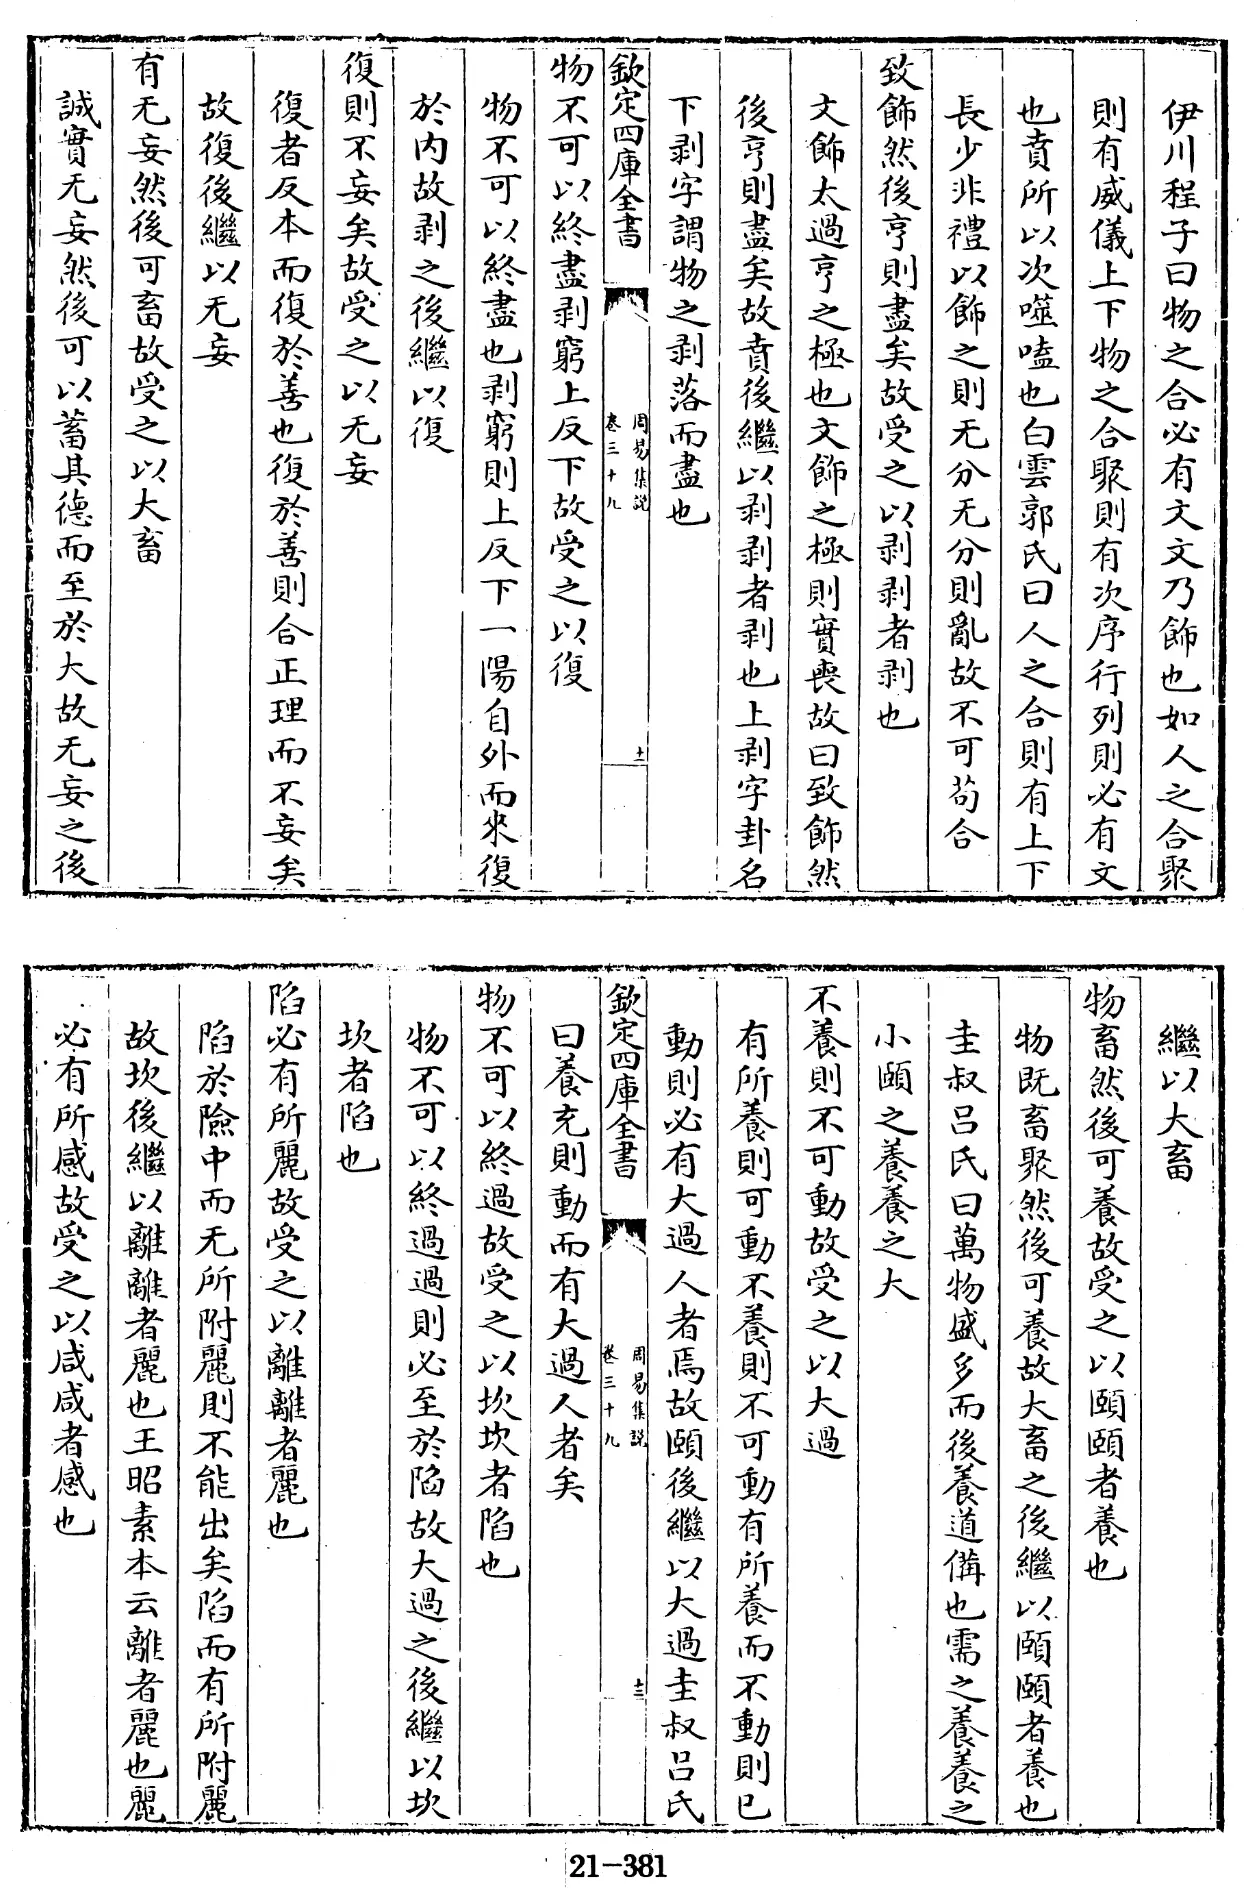 伊川程子曰物之合必有文文乃飾也如人之合聚
則有威儀上下物之合聚則有次序行列則必有文
也賁所以次噬嗑也白雲郭氏曰人之合則有上下
長少非禮以飾之則无分无分則亂故不可茍合
致飾然後亨則盡矣故受之以剥剥者剥也
文飾太過亨之極也文飾之極則實喪故曰致飾然
後亨則盡矣故賁後繼以剥剥者剥也上剥字卦名
下剥字謂物之剥落而盡也
欽定四庫全書
周易集說
卷三十九
十一
物不可以終盡剥窮上反下故受之以復
物不可以終盡也剥窮則上反下一陽自外而來復
於内故剥之後繼以復
復則不妄矣故受之以无妄
復者反本而復於善也復於善則合正理而不妄矣
故復後繼以无妄
有无妄然後可畜故受之以大畜
誠實无妄然後可以蓄其德而至於大故无妄之後
繼以大畜
物畜然後可養故受之以頤頤者養也
物既畜聚然後可養故大畜之後繼以頤頤者養也
圭叔吕氏曰萬物盛多而後養道備也需之養養之
小頤之養養之大
不養則不可動故受之以大過
有所養則可動不養則不可動有所養而不動則已
動則必有大過人者焉故頤後繼以大過圭叔吕氏
欽定四庫全書
周易集說
卷三十九
十二
曰養充則動而有大過人者矣
物不可以終過故受之以坎坎者陷也
物不可以終過過則必至於陷故大過之後繼以坎
坎者陷也
陷必有所麗故受之以離離者麗也
陷於險中而无所附麗則不能出矣陷而有所附麗
故坎後繼以離離者麗也王昭素本云離者麗也麗
必有所感故受之以咸咸者感也
21-381